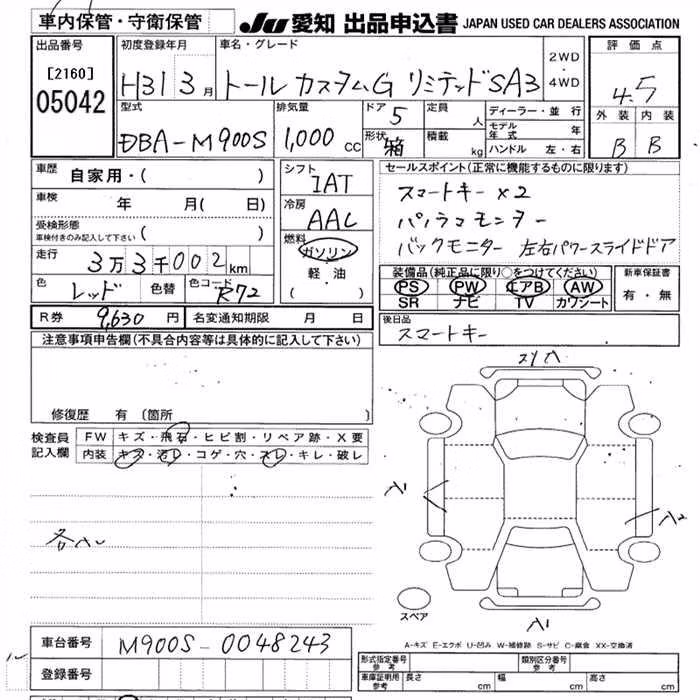 車内保管・守衛保管
JU 愛知 出品申込書 JAPAN USED CAR DEALERS ASSOCIATION
出品番号
[2160]
05042
初度登録年月
H31 3月
車名・グレード
トールカスタムG リミテッドSA3
2WD
・
4WD
評価点
4.5
外装 内装
B B
型式
DBA-M900S
排気量
1,000 cc
ドア 5
形状 箱
定員 人
積載 kg
ディーラー・並行
モデル年式 年
ハンドル 左・右
車歴 自家用・( )
車検 年 月( 日)
受検形態
車検付きのみ記入して下さい ( )
走行 3万3千002km
色 レッド 色替 色コード R72
シフト
IAT
冷房
AAC
燃料
ガソリン
軽・油
( )
セールスポイント(正常に機能するものに限ります)
スマートキー×2
パノラマモニター
バックモニター 左右パワースライドドア
装備品(純正品に限り○をつけてください)
PS PW エアB AW
SR ナビ TV カワシート
新車保証書
有・無
R券 9,630円 名変通知期限 月 日
後日品
スマートキー
注意事項申告欄(不具合内容等は具体的に記入して下さい)
修復歴 有 〔箇所 〕
検査員
記入欄
FW キズ・飛石・ヒビ割・リペア跡・X要
内装 キズ・汚レ・コゲ・穴・スレ・キレ・破レ
A1
A2
A1
スペア
A-キズ E-エクボ U-凹み W-補修跡 S-サビ C-腐食 XX-交換済
車台番号 M900S-0048243
登録番号
形式指定番号
参考
類別区分番号
参考
車庫証明用
参考
長さ cm 幅 cm 高さ cm